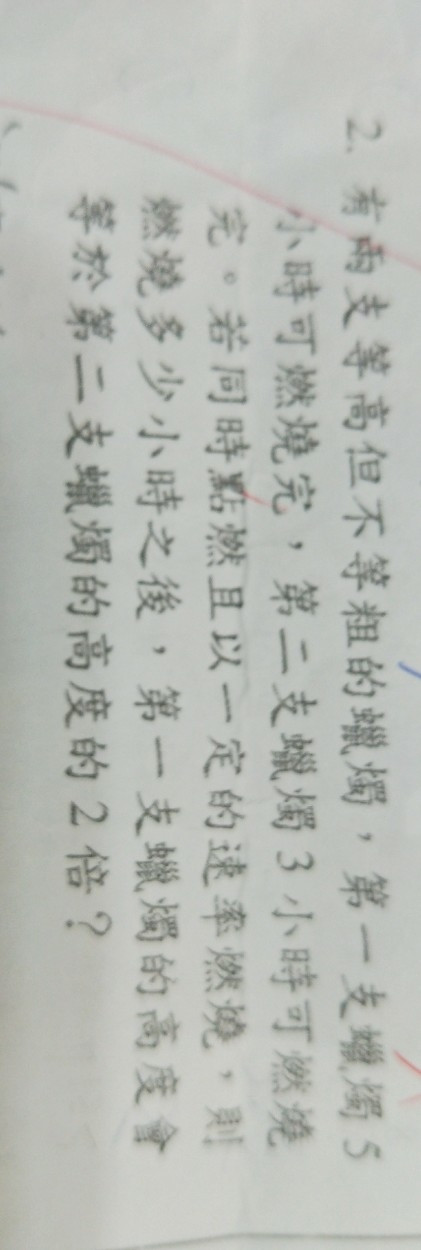 2. 有兩支等高但不等粗的蠟燭，第一支蠟燭5
小時可燃燒完，第二支蠟燭3小時可燃燒
完。若同時點燃且以一定的速率燃燒，則
燃燒多少小時之後，第一支蠟燭的高度會
等於第二支蠟燭的高度的2倍？